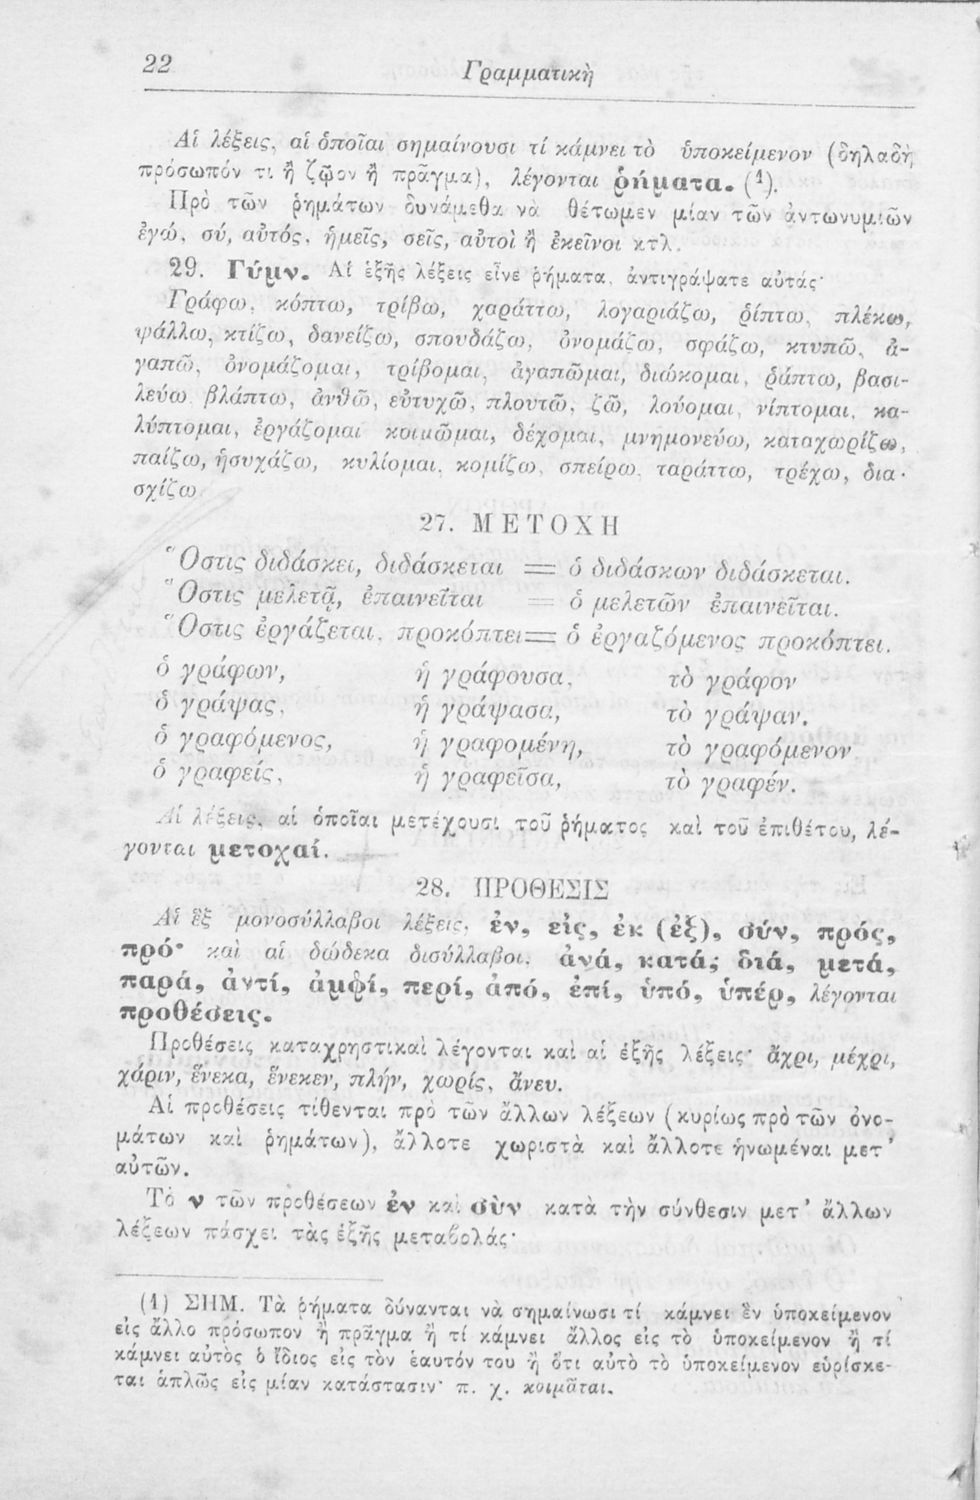 22 Γραμματικὴ
Αἱ λέξεις, αἱ ὁποῖαι σημαίνουσι τί κάμνει τὸ ὑποκείμενον (δηλαδὴ
πρόσωπόν τι ἢ ζῷον ἢ πρᾶγμα), λέγονται ῥήματα. (1).
Πρὸ τῶν ῥημάτων δυνάμεθα νὰ θέτωμεν μίαν τῶν ἀντωνυμιῶν
ἐγώ, σύ, αὐτός, ἡμεῖς, σεῖς, αὐτοὶ ἢ ἐκεῖνοι κτλ.
29. Γύμν. Αἱ ἑξῆς λέξεις εἶνε ῥήματα, ἀντιγράψατε αὐτάς·
Γράφω, κόπτω, τρίβω, χαράττω, λογαριάζω, ῥίπτω, πλέκω,
ψάλλω, κτίζω, δανείζω, σπουδάζω, ὀνομάζω, σφάζω, κτυπῶ, ἀ-
γαπῶ, ὀνομάζομαι, τρίβομαι, ἀγαπῶμαι, διώκομαι, ῥάπτω, βασι-
λεύω βλάπτω, ἀνθῶ, εὐτυχῶ, πλουτῶ, ζῶ, λούομαι, νίπτομαι, κα-
λύπτομαι, ἐργάζομαι κοιμῶμαι, δέχομαι, μνημονεύω, καταχωρίζω,
παίζω, ἡσυχάζω, κυλίομαι, κομίζω, σπείρω, ταράττω, τρέχω, δια-
σχίζω
27. ΜΕΤΟΧΗ
Ὅστις διδάσκει, διδάσκεται = ὁ διδάσκων διδάσκεται.
Ὅστις μελετᾷ, ἐπαινεῖται = ὁ μελετῶν ἐπαινεῖται.
Ὅστις ἐργάζεται, προκόπτει = ὁ ἐργαζόμενος προκόπτει.
ὁ γράφων, ἡ γράφουσα, τὸ γράφον
ὁ γράψας, ἡ γράψασα, τὸ γράψαν.
ὁ γραφόμενος, ἡ γραφομένη, τὸ γραφόμενον
ὁ γραφείς, ἡ γραφεῖσα, τὸ γραφέν.
Αἱ λέξεις, αἱ ὁποῖαι μετέχουσι τοῦ ῥήματος καὶ τοῦ ἐπιθέτου, λέ-
γονται μετοχαί.
28. ΠΡΟΘΕΣΙΣ
Αἱ ἓξ μονοσύλλαβοι λέξεις, ἐν, εἰς, ἐκ (ἐξ), σύν, πρός,
πρό· καὶ αἱ δώδεκα δισύλλαβοι, ἀνά, κατά, διά, μετά,
παρά, ἀντί, ἀμφί, περί, ἀπό, ἐπί, ὑπό, ὑπέρ, λέγονται
προθέσεις.
Προθέσεις καταχρηστικαὶ λέγονται καὶ αἱ ἑξῆς λέξεις· ἄχρι, μέχρι,
χάριν, ἕνεκα, ἕνεκεν, πλήν, χωρίς, ἄνευ.
Αἱ προθέσεις τίθενται πρὸ τῶν ἄλλων λέξεων (κυρίως πρὸ τῶν ὀνο-
μάτων καὶ ῥημάτων), ἄλλοτε χωριστὰ καὶ ἄλλοτε ἡνωμέναι μετ'
αὐτῶν.
Τὸ ν τῶν προθέσεων ἐν καὶ σὺν κατὰ τὴν σύνθεσιν μετ' ἄλλων
λέξεων πάσχει τὰς ἑξῆς μεταβολάς·
(1) ΣΗΜ. Τὰ ῥήματα δύνανται νὰ σημαίνωσι τί κάμνει ἓν ὑποκείμενον
εἰς ἄλλο πρόσωπον ἢ πρᾶγμα ἢ τί κάμνει ἄλλος εἰς τὸ ὑποκείμενον ἢ τί
κάμνει αὐτὸς ὁ ἴδιος εἰς τὸν ἑαυτόν του ἢ ὅτι αὐτὸ τὸ ὑποκείμενον εὑρίσκε-
ται ἁπλῶς εἰς μίαν κατάστασιν· π. χ. κοιμᾶται.